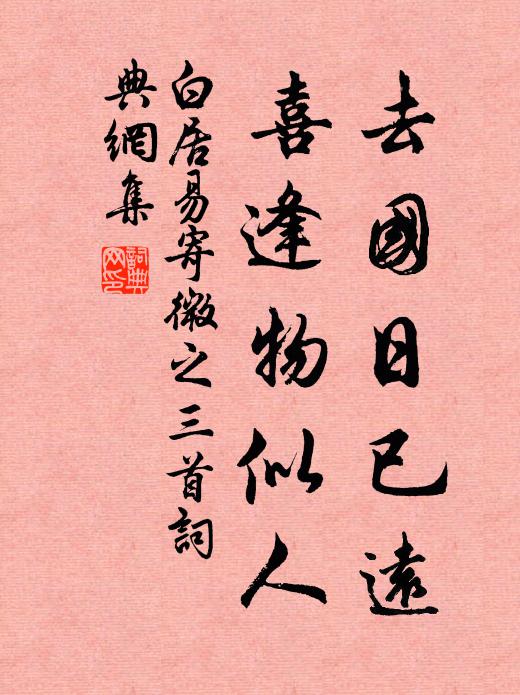 去國日已遠
喜逢物似人
白居易寄微之三首詞
典網集
詞典
网印